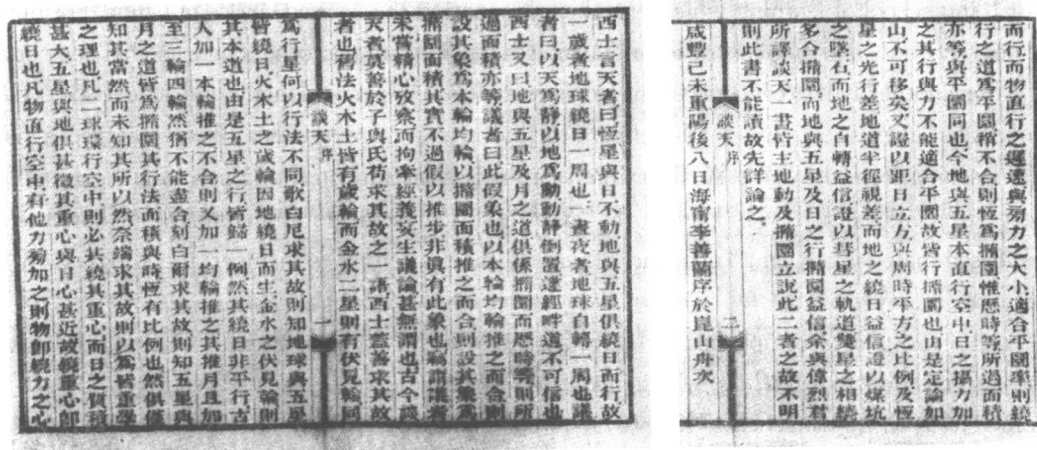 西士言天者曰恆星與日不動地與五星俱繞日而行故
一歲者地球繞日一周也一晝夜者地球自轉一周也議
者曰以天爲靜以地爲動動靜倒置違經畔道不可信也
西士又曰地與五星及月之道俱係撱圜而歷時等則所
過面積亦等議者曰此假象也以本輪均輪推之而合則
設其象爲本輪均輪以撱圜面積推之而合則設其象爲
撱圜面積其實不過假以推步非眞有此象也竊謂議者
未嘗精心攷察而拘牽經義妄生議論甚無謂也古今談
天者莫善於子輿氏苟求其故之一語西士蓋善求其故
者也舊法火木土皆有歲輪而金水二星則有伏見輪同
談天 序 一
爲行星何以行法不同歌白尼求其故則知地球與五星
皆繞日火木土之歲輪因地繞日而生金水之伏見輪則
其本道也由是五星之行皆歸一例然其繞日非平行古
人加一本輪推之不合則又加一均輪推之其推月且加
至三輪四輪然猶不能盡合刻白爾求其故則知五星與
月之道皆爲撱圜其行法面積與時恆有比例也然俱僅
知其當然而未知其所以然奈端求其故則以爲皆重學
之理也凡二球環行空中則必共繞其重心而日之質積
甚大五星與地俱甚微其重心與日心甚近故繞重心卽
繞日也凡物直行空中有他力旁加之則物卽繞力之心
而行而物直行之遲速與旁力之大小適合平圜率則繞
行之道爲平圜稍不合則恆爲撱圜惟歷時等所過面積
亦等與平圜同也今地與五星本直行空中日之攝力加
之其行與力不能適合平圜故皆行撱圜也由是定論如
山不可移矣又證以距日立方與周時平方之比例及恆
星之光行差地道半徑視差而地之繞日益信證以煤坑
之墜石而地之自轉益信證以彗星之軌道雙星之相繞
多合撱圜而地與五星及日之行撱圜益信余與偉烈君
所譯談天一書皆主地動及撱圜立說此二者之故不明
則此書不能讀故先詳論之
談天 序 二
咸豐己未重陽後八日海甯李善蘭序於崑山舟次